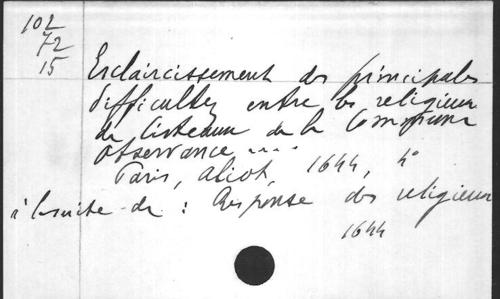 102
72
15
Esclaircissement des principales
difficultez entre les religieux
de Cisteaux de la Commune
Observance ....
Paris, Aliot, 1644, 4°
à la suite de : Response des religieux
1644